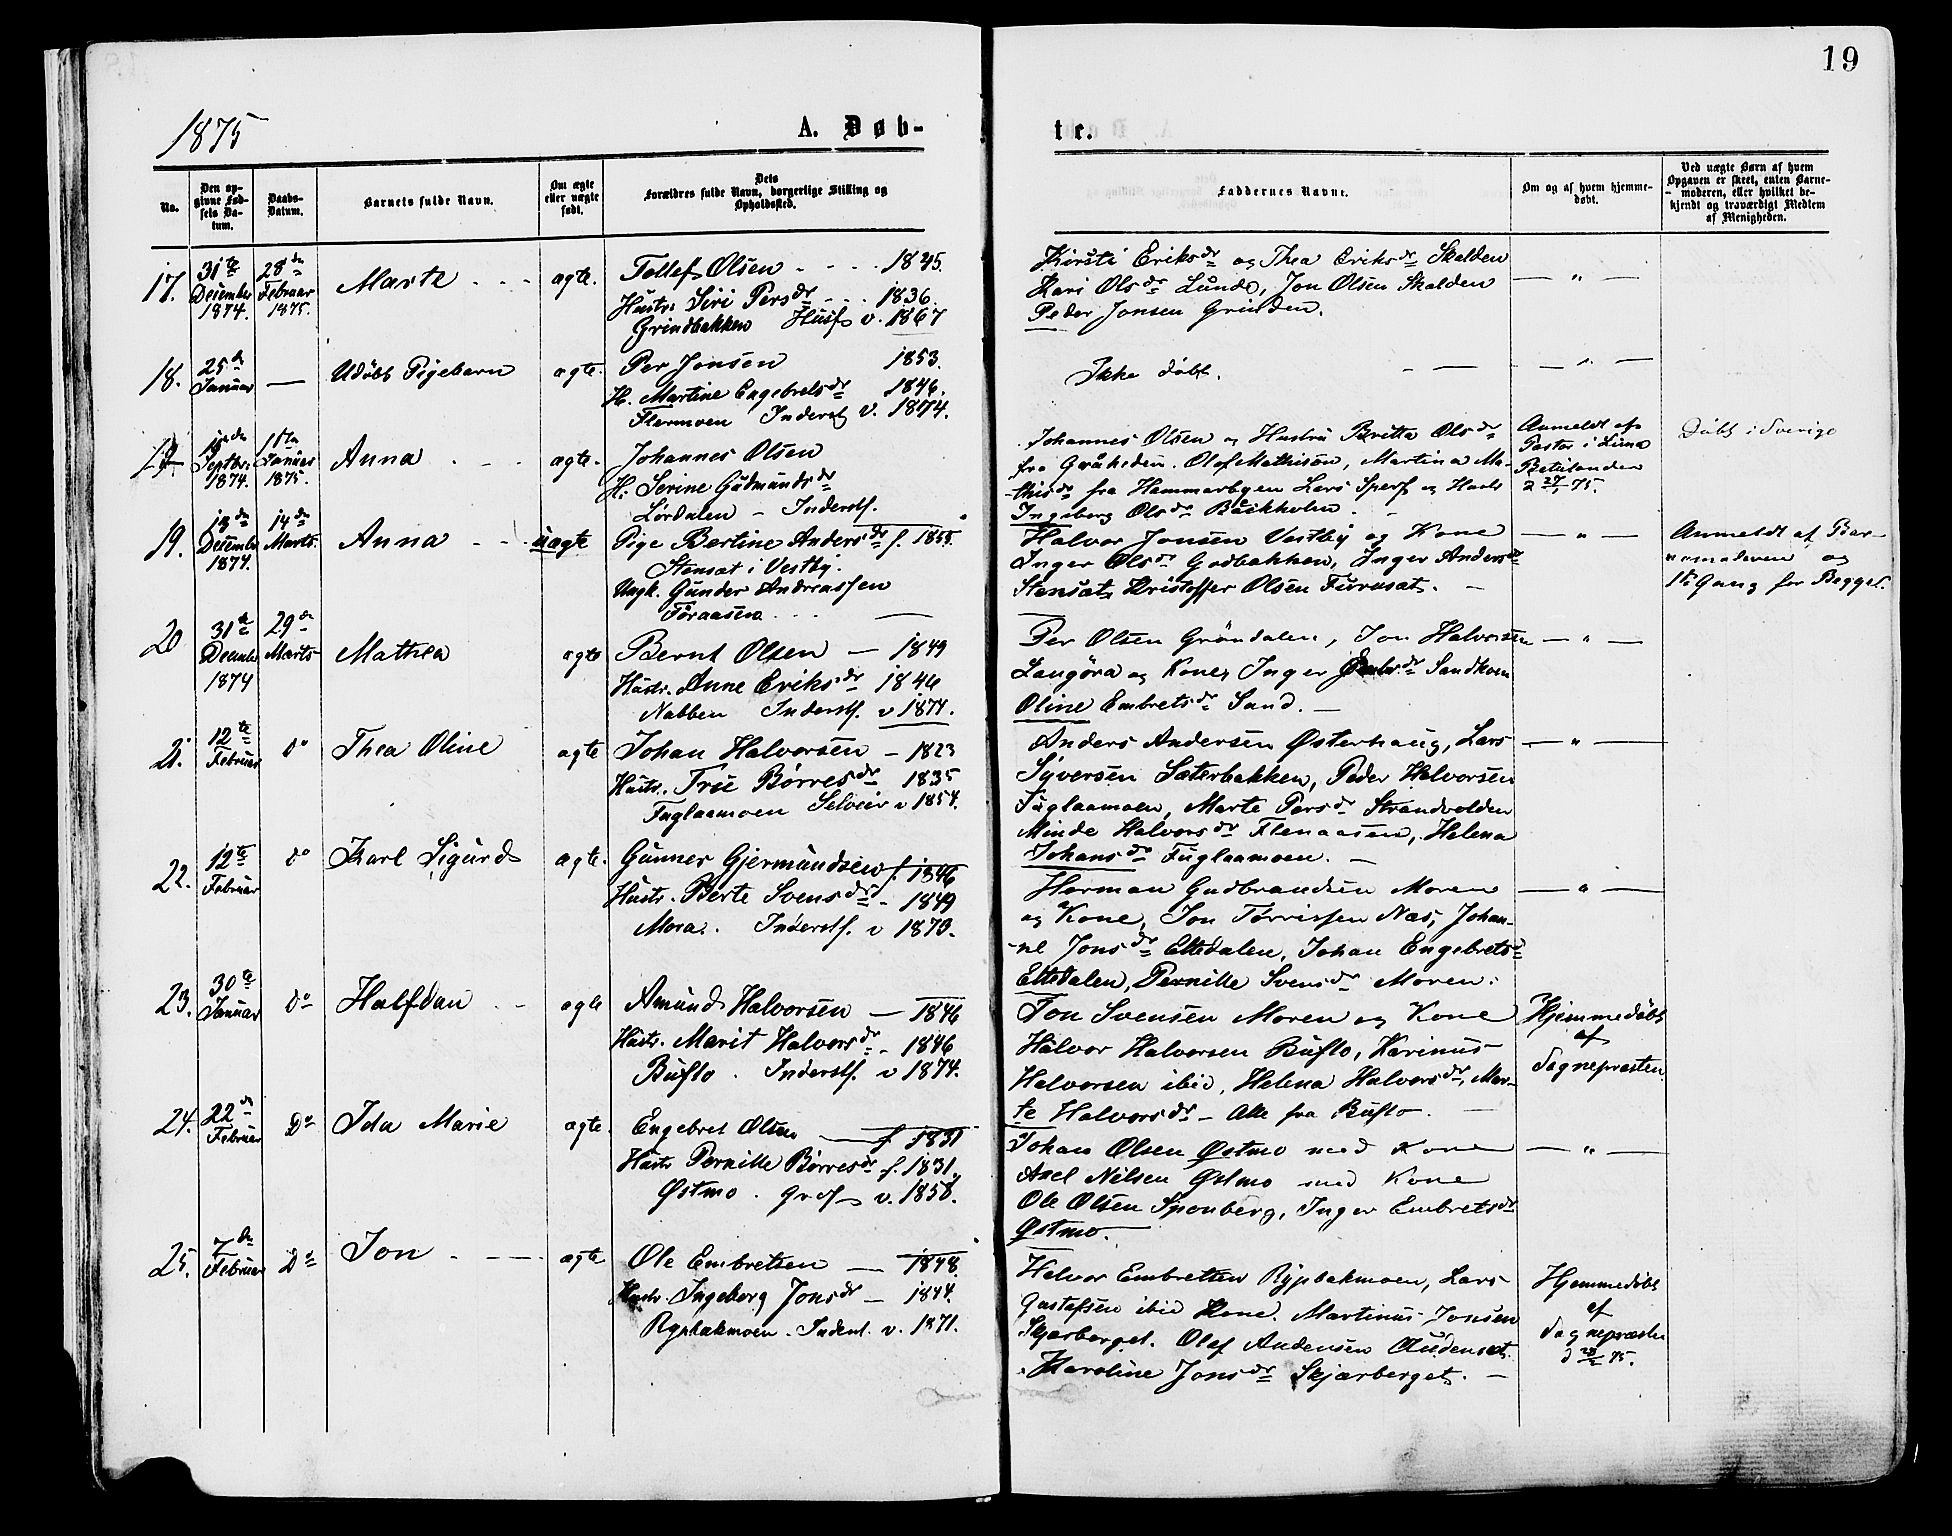 19
1875
A. Døb-
te.
No.
Den op-
givne Fød-
sels Da-
tum.
Daabs-
Datum.
Barnets fulde Navn.
Om ægte
eller uægte
født.
Dets
Forældres fulde Navn, borgerlige Stilling og
Opholdssted.
Faddernes Navne.
Om og af hvem hjemme-
døbt.
Ved uægte Børn af hvem
Opgaven er skeet, enten Barne-
moderen, eller hvilket be-
kjendt og troværdigt Medlem
af Menigheden.
17.
31te
December
1874.
28de
Februar
1875.
ægte.
Tollef Olsen - - - - 1845.
Hustr. Siri Persdr - - - 1836.
Grindbakken Husf v. 1867
Kirsti Eriksdr og Thea Eriksdr Skolden
Kari Olsdr Lunde, Jon Olsen Skolden
Peder Jonsen Grinden.
— " —
18.
25de
Januar
—
Udøbt Pigebarn
ægte.
Per Jonsen 1853.
H. Martine Engebretsdr 1846.
Flermoen Inderst v. 1874.
Ikke døbt.
— " —
19
Septbr.
1874.
Januar
1875.
Anna - - -
ægte.
Johannes Olsen
H: Serine Gudmundsdr
Lørdalen - Inderstf.
Johannes Olsen og Hustru Britta Olsdr
fra Gråheden. Olof Mathison, Martina Ma-
thisdr fra Hammarbyen Lars Sperf og Hustr
Ingeborg Olsdr Bäckholen.
Anmeldt af
Pastor i Lima
27/1 75.
Døbt i Sverige
19.
13de
December
1874.
14de
Marts.
Anna - - -
uægte
Pige Bertine Andersdr f.
Stensæt i Vestby.
Ungk. Gunder Andreassen
Foraasen - - -
Halvor Jonsen Vestby og Kone
Inger Olsdr Godbakken, Inger Andersdr
Stensæt, Kristoffer Olsen Furuset. -
— " —
Anmeldt af Bar-
nemoderen og
1ste Gang for Begge.
20
31te
December
1874
29de
Marts-
Mathea
ægte
Bernt Olsen — 1849
Hustr. Anne Eriksdr 1846
Nabben Inderstf. v 1874.
Per Olsen Grøndalen, Jon Halvorsen
Langøra og Kone, Inger Sandkven
Oline Embretsdr Sand. -
— " —
21.
12te
Februar
do
Thea Oline
ægte
Johan Halvorsen - 1823
Hustr. True Børresdr 1835
Fuglaamoen Selveier v 1854.
Anders Andersen Østerhaug, Lars
Syversen Sæterbakken, Peder Halvorsen
Fuglaamoen, Marte Persdr Strandvolden
Minde Halvorsdr Flenaasen, Helena
Johansdr Fuglaamoen. —
— " —
22.
12te
Februar
do
Karl Sigurd
ægte.
Gunner Gjermundsen f. 1846
Hustr. Berte Svensdr - 1849
Mora. Inderstf. v 1870.
Herman Gudbrandsen Moren
og Kone, Jon Tørrissen Næs, Johan-
ne Jonsdr Eltedalen, Johan Engebrets-
Eltedalen, Pernille Svensdr Moren.
— " —
23.
30te
Januar
do
Halfdan - -
ægte
Amund Halvorsen — 1846
Hustr. Marit Halvorsdr - 1846
Buflo. Inderstf. v 1874.
Jon Svensen Moren og Kone
Halvor Halvorsen Buflo, Karinus
Halvorsen ibid, Helena Halvorsdr, Mar-
te Halvorsdr - Alle fra Buflo. —
Hjemmedøbt
af
Sognepræsten
24.
22de
Februar
Do
Ida Marie
ægte.
Engebret Olsen — f. 1831
Hustr Pernille Børresdr f. 1831.
Østmo. v. 1858.
Johan Olsen Østmo med Kone
Axel Nilsen Østmo med Kone
Ole Olsen Sponberg, Inger Embretsdr
Østmo.
— " —
25.
7de
Februar
Do
Jon - - -
ægte
Ole Embretsen — 1848.
Hustr. Ingeborg Jonsdr — 1844.
Rypbakmoen. Inderst. v. 1871.
Halvor Embretsen Rypbakmoen, Lars
Gustafsen ibid Kone. Martinus Jonsen
Skjærberget. Olof Andersen
Karoline Jonsdr Skjærberget. —
Hjemmedøbt
af
Sognepræsten
75.